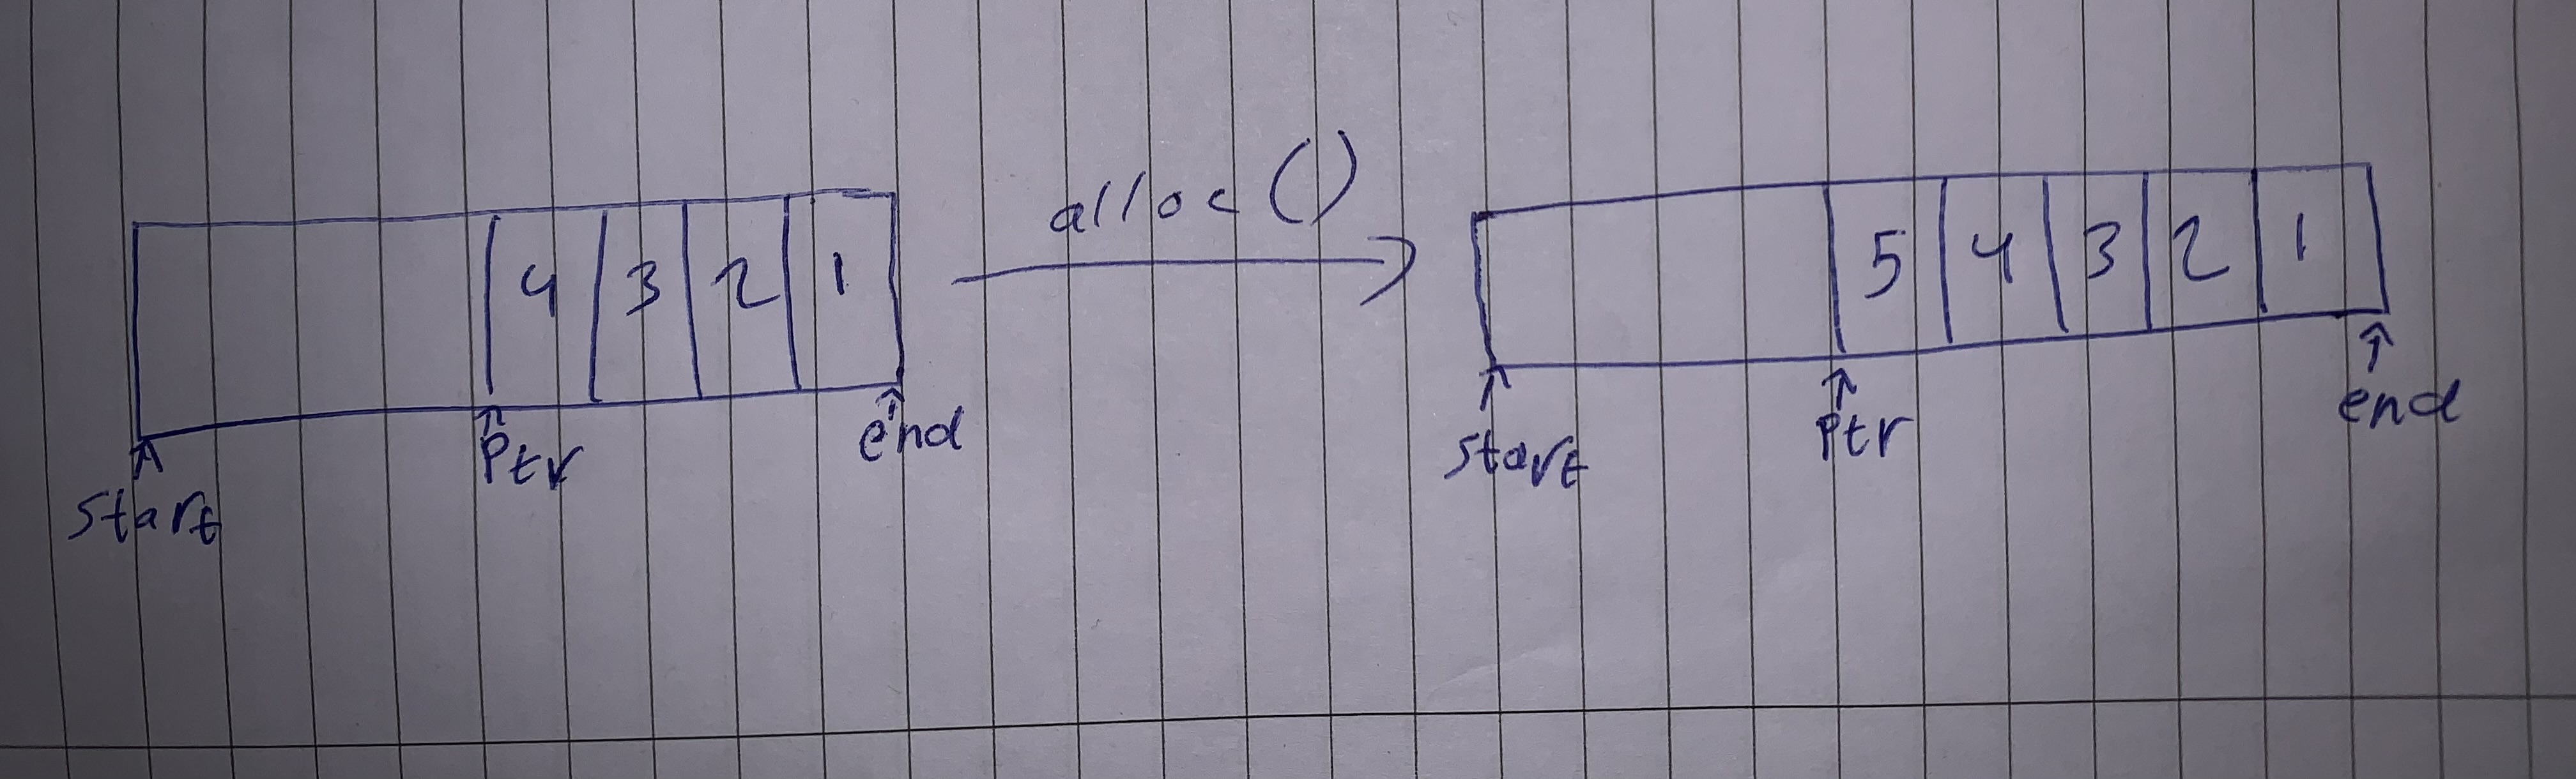 4 3 2 1
start
Ptr
end
alloc()
5 4 3 2 1
start
Ptr
end